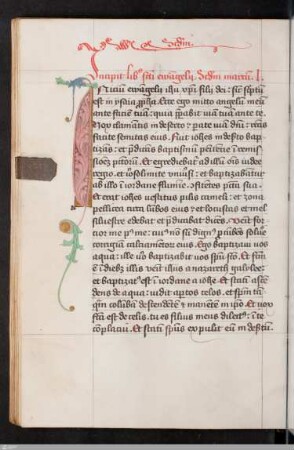 Incipit lib' sancti ewangelii scdm marcu. I.
Initiu ewangelii ihu xpi filii dei: sicut scriptu
est in ysaia ppha. Ecce ego mitto angelu meu
ante facie tua: qui ppabit uia tua ante te.
Vox clamantis in deserto parate uia dni: rectas
facite semitas eius. Fuit iohes in deserto bap
tisans: et pdicans baptismu penitentie i remis
sione pctoru. Et egrediebat ad illu ois iudee
regio. et iherosolimite vniusi: et baptizabantur
ab illo i iordane flumie. ofitetes pctā sua.
Et erat iohes uestitus pilis cameli: et zona
pellicea circa lubos eius: et locustas et mel
siluestre edebat et pdicabat dices. Venit for
tior me post me: cui' no su dign' procubes solue
corrigia calciamentoru eius. Ego baptizaui vos
aqua: ille uo baptizabit vos spu sco. Et fcm
e i diebz illis venit ihus a nazareth galylee:
et baptizat' est i iordane a iohe. Et statim asce
dens de aqua: uidit aptos celos. et spm tā
qm columba descendete et manete in ipo. Et vox
fca est de celis. tu es filius meus dilect': i te
coplacui. Et statim spus expulit eum i desertu.